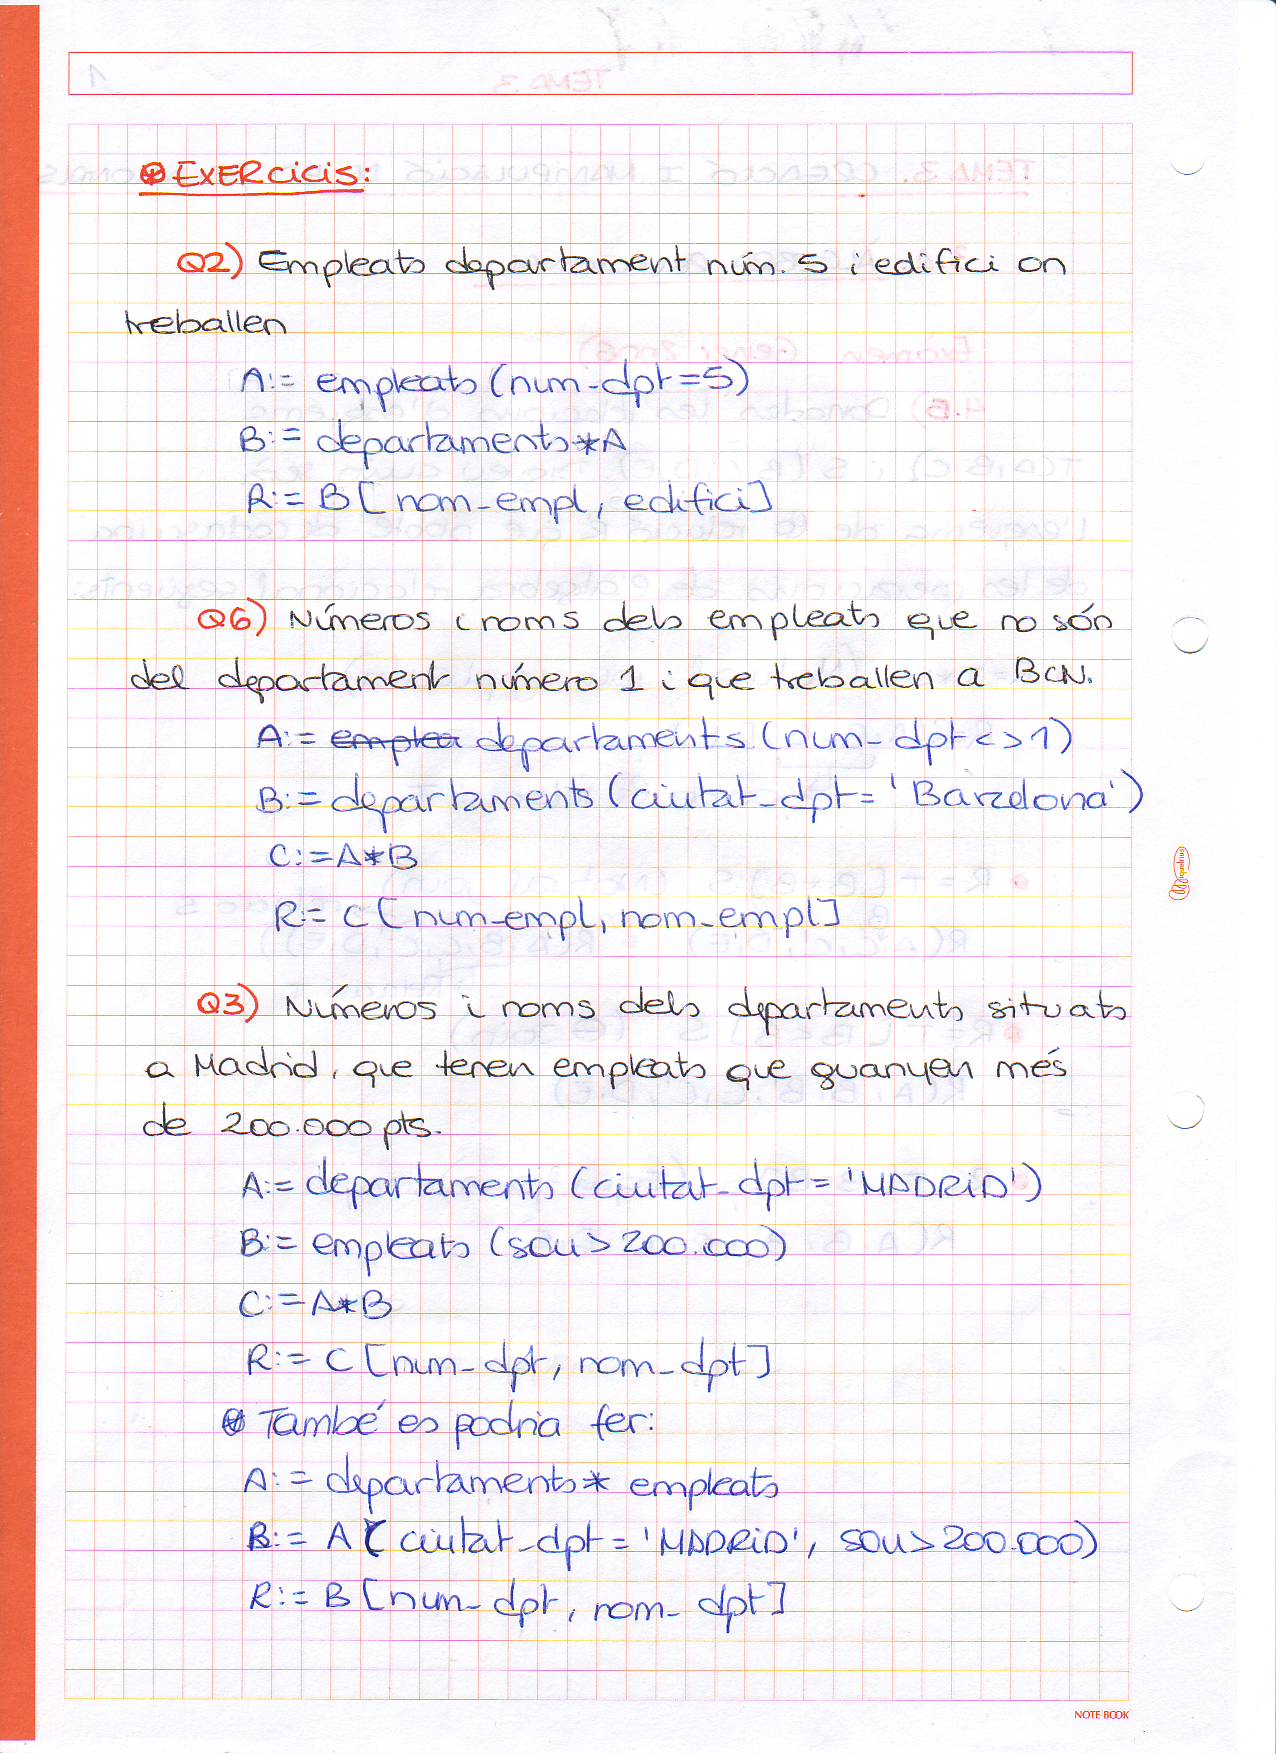 EXERCICIS:
Q2) Empleats departament núm. 5 i edifici on
treballen
A:= empleats (num-dpt=5)
B:= departaments*A
R:= B[nom-empl, edifici]
Q6) Números i noms dels empleats que no són
del departament número 1 i que treballen a BCN.
A:= emplea departaments (num-dpt<>1)
B:= departaments (ciutat-dpt='Barcelona')
C:=A*B
R:= C[num-empl, nom-empl]
Q3) Números i noms dels departaments situats
a Madrid, que tenen empleats que guanyen més
de 200.000 pts.
A:= departaments (ciutat-dpt='MADRID')
B:= empleats (sou>200.000)
C:=A*B
R:= C[num-dpt, nom-dpt]
També es podria fer:
A:= departaments* empleats
B:= A(ciutat-dpt='MADRID', sou>200.000)
R:= B[num-dpt, nom-dpt]
miquelrius
NOTE BOOK